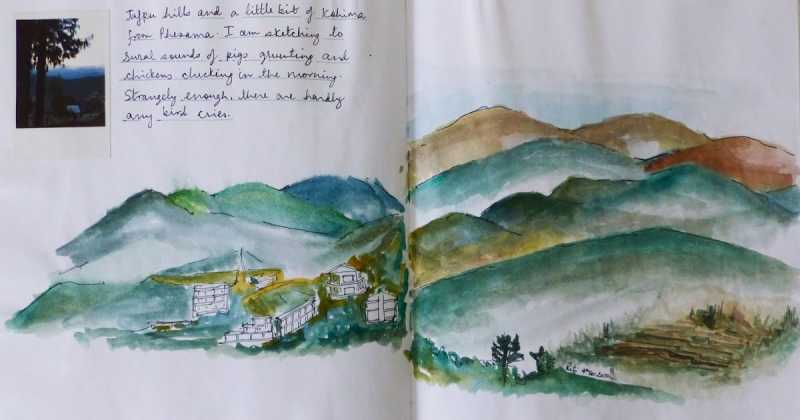 Jafpu hills and a little bit of Kohima
from Phesama. I am sketching to
rural sounds of pigs grunting and
chickens clucking in the morning.
Strangely enough, there are hardly
any bird cries.